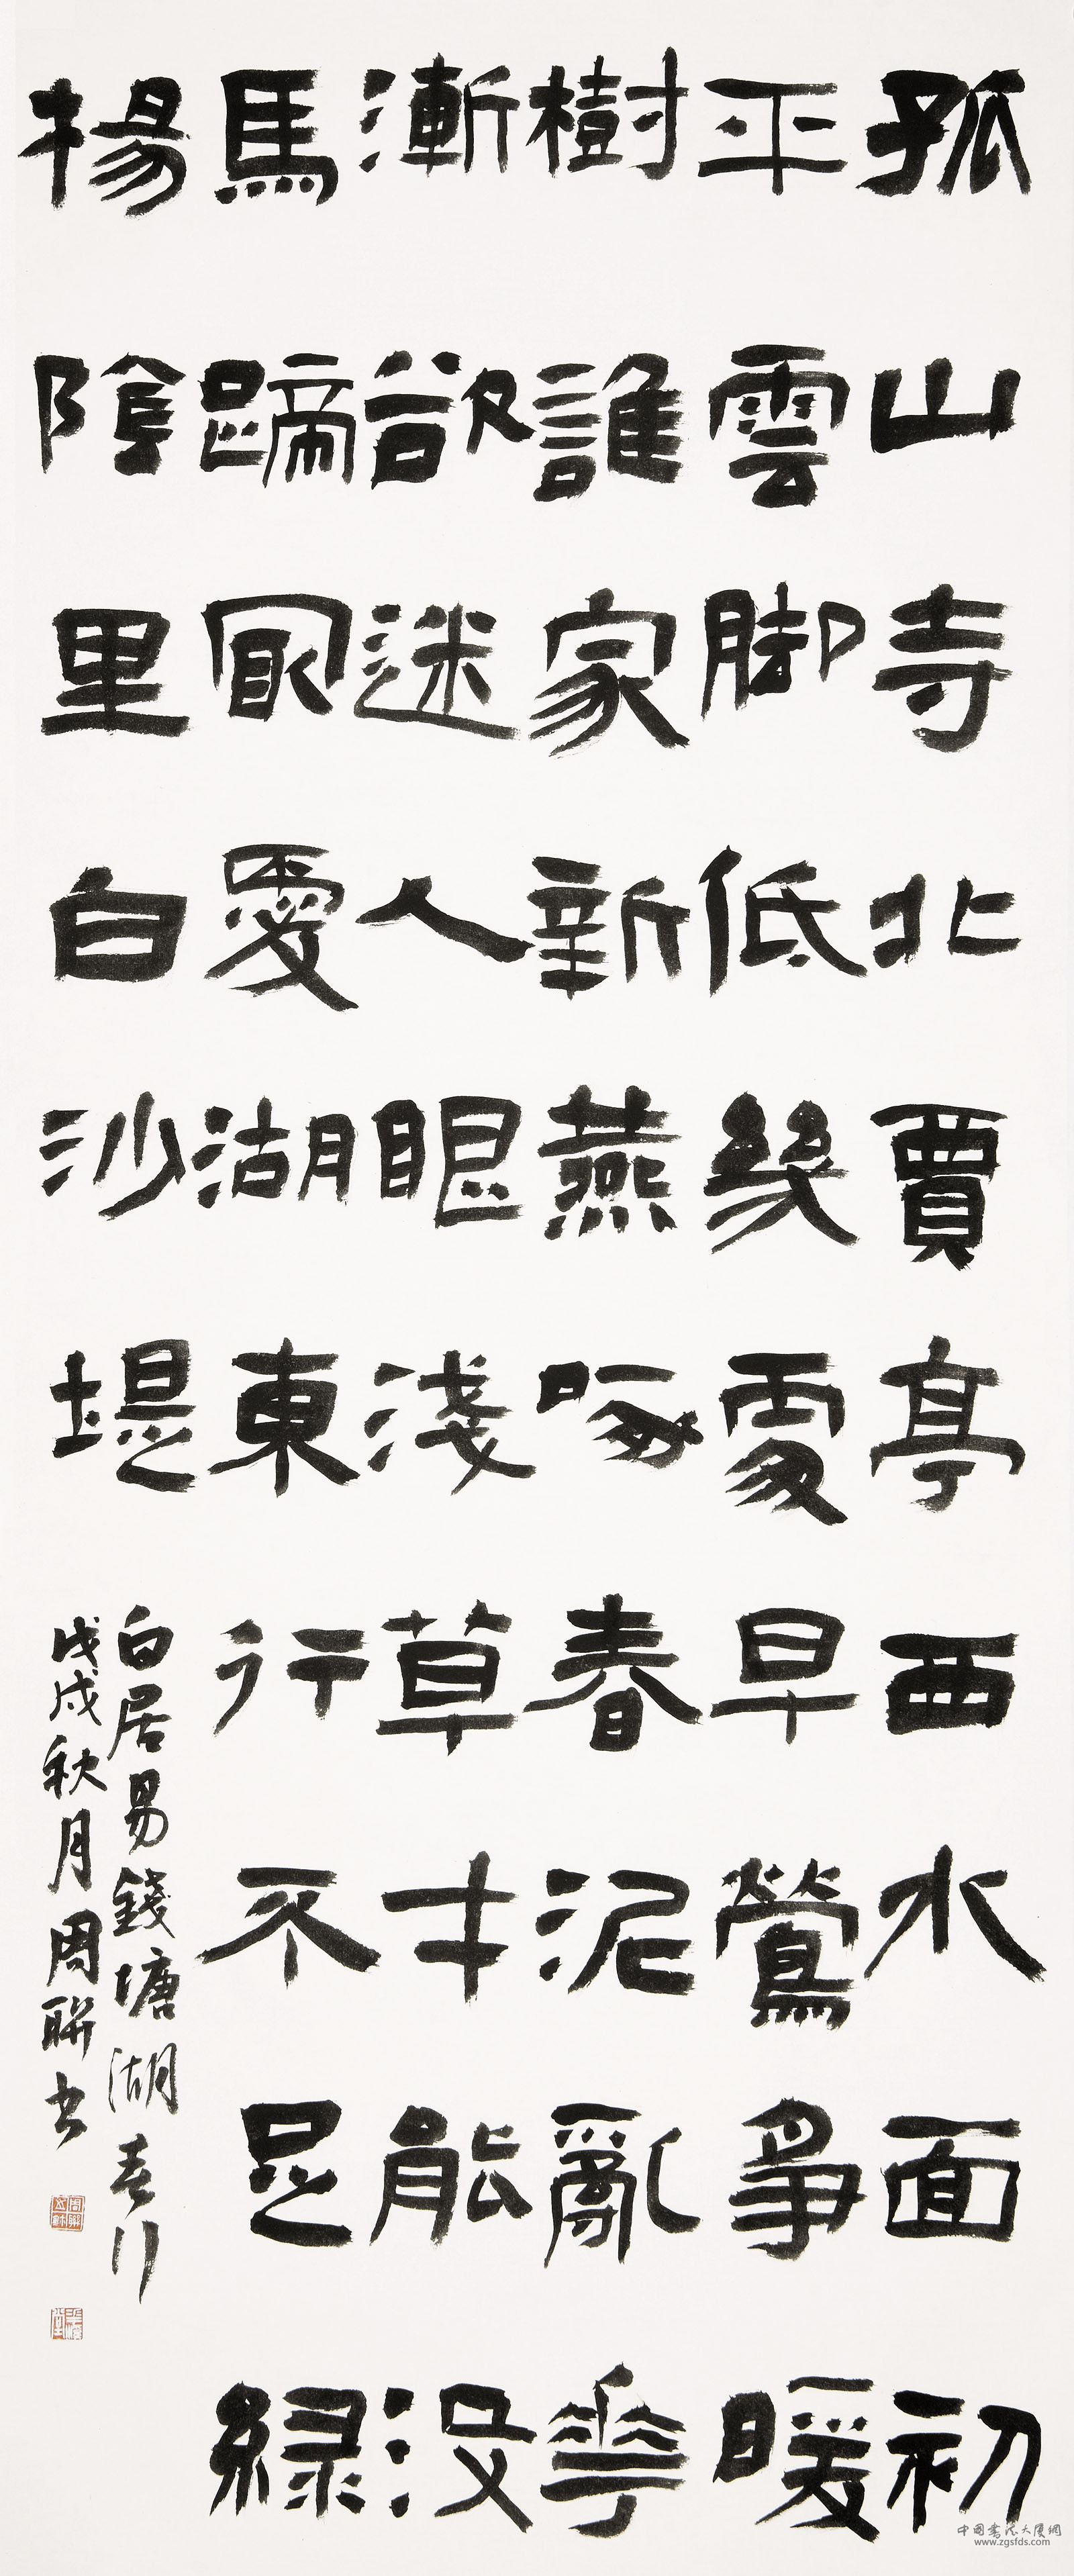 孤山寺北賈亭西水面初
平雲脚低幾處早鶯爭暖
樹誰家新燕啄春泥亂花
漸欲迷人眼淺草才能沒
馬蹄冣愛湖東行不足綠
楊陰里白沙堤
白居易錢塘湖春行
戊戌秋月周聯书
中國書法大廈網
www.zgsfds.com